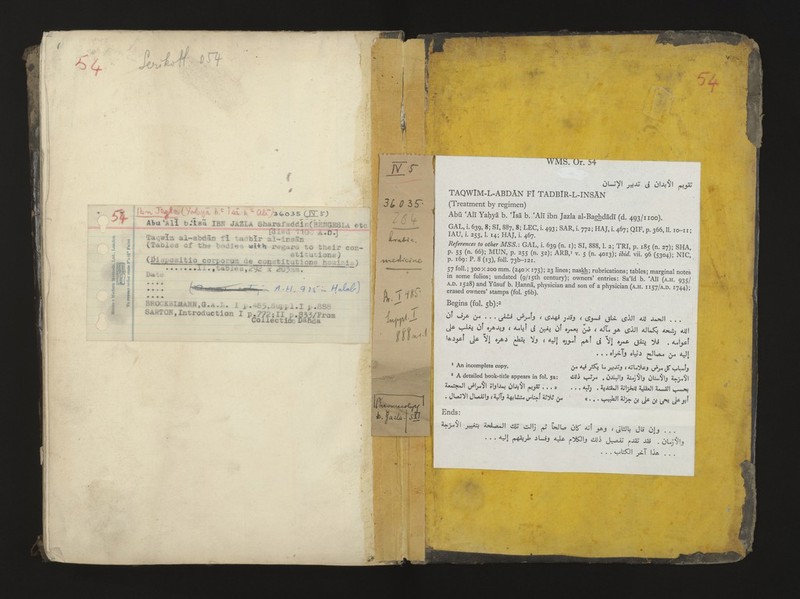 54
Serikoff. 054
54
36035 (IV 5)
Abu 'Alī b.Īsā IBN JAZLA Sharafaddīn(BENGESLA etc
(died 1100 A.D.)
Taqwīm al-abdān fī tadbīr al-insān
(Tables of the bodies with regard to their con-
stitutions)
(Dispositio corporum de constitutione hominis)
Date
A.H. 935 – Halab)
BROCKELMANN,G.A.L. I p.485.Suppl.I p.888
SARTON,Introduction I p.772;II p.833/From
Collection Dahda
IV 5
36035
Arabic
medicine
Br. I 485
Suppl. I
54
WMS. Or. 54
تقويم الأبدان فى تدبير الإنسان
TAQWĪM-L-ABDĀN FĪ TADBĪR-L-INSĀN
(Treatment by regimen)
Abū 'Alī Yaḥyā b. 'Īsā b. 'Alī ibn Jazla al-Baghdādī (d. 493/1100).
GAL, i. 639, 8; SI, 887, 8; LEC, i. 493; SAR, i. 772; HAJ, i. 467; QIF, p. 366, ll. 10-11;
IAU, i. 255, l. 14; HAJ, i. 467.
References to other MSS.: GAL, i. 639 (n. 1); SI, 888, l. 2; TRI, p. 185 (n. 27); SHA,
p. 55 (n. 66); MUN, p. 255 (n. 52); ARB,¹ v. 5 (n. 4013); ibid. vii. 96 (5504); NIC,
p. 169: P. 8 (13), foll. 73b-121.
57 foll.; 300×200 mm. (240×175); 23 lines; naskh; rubrications; tables; marginal notes
in some folios; undated (9/15th century); owners' entries: Sa'īd b. 'Alī (A.H. 935/
A.D. 1528) and Yūsuf b. Ḥannā, physician and son of a physician (A.H. 1157/A.D. 1744);
erased owners' stamps (fol. 56b).
Begins (fol. 3b):²
... الحمد لله الذى خلق فسوى ، وقدر فهدى ، وأمرض فشفى ... من عرف أن
الله رشحه بكماله الذى هو مآله ، شحّ بعمره أن يفنى فى أيامه ، وبدهره أن يغلب على
أعوامه . فلا ينفق عمره إلاّ فى أهم أموره إليه ، ولا يقطع دهره إلاّ على أعودها
إليه من مصالح دنياه وآخراه ...
¹ An incomplete copy.
² A detailed book-title appears in fol. 5a:
وأسباب كل مرض وعلاماته ، وتدبير ما يكثر فيه من
الأمزجة والأسنان والأزمنة والبلدان . مرتب ذلك
« ... تقويم الأبدان بمداواة الأمراض المجتمعة
من ثلاثة أجناس متشابهة وآلية ، وانفصال الاتصال .
أبو على يحيى بن على بن جزلة الطبيب ... »
Ends:
... وإن قال بالثانى ، وهو أنه كان صالحاً ثم زالت تلك المصلحة بتغيير الأمزجة
والأزمان . فقد تقدم تفصيل ذلك والكلام عليه وفساد طريقهم إليه ...
... هذا آخر الكتاب ...